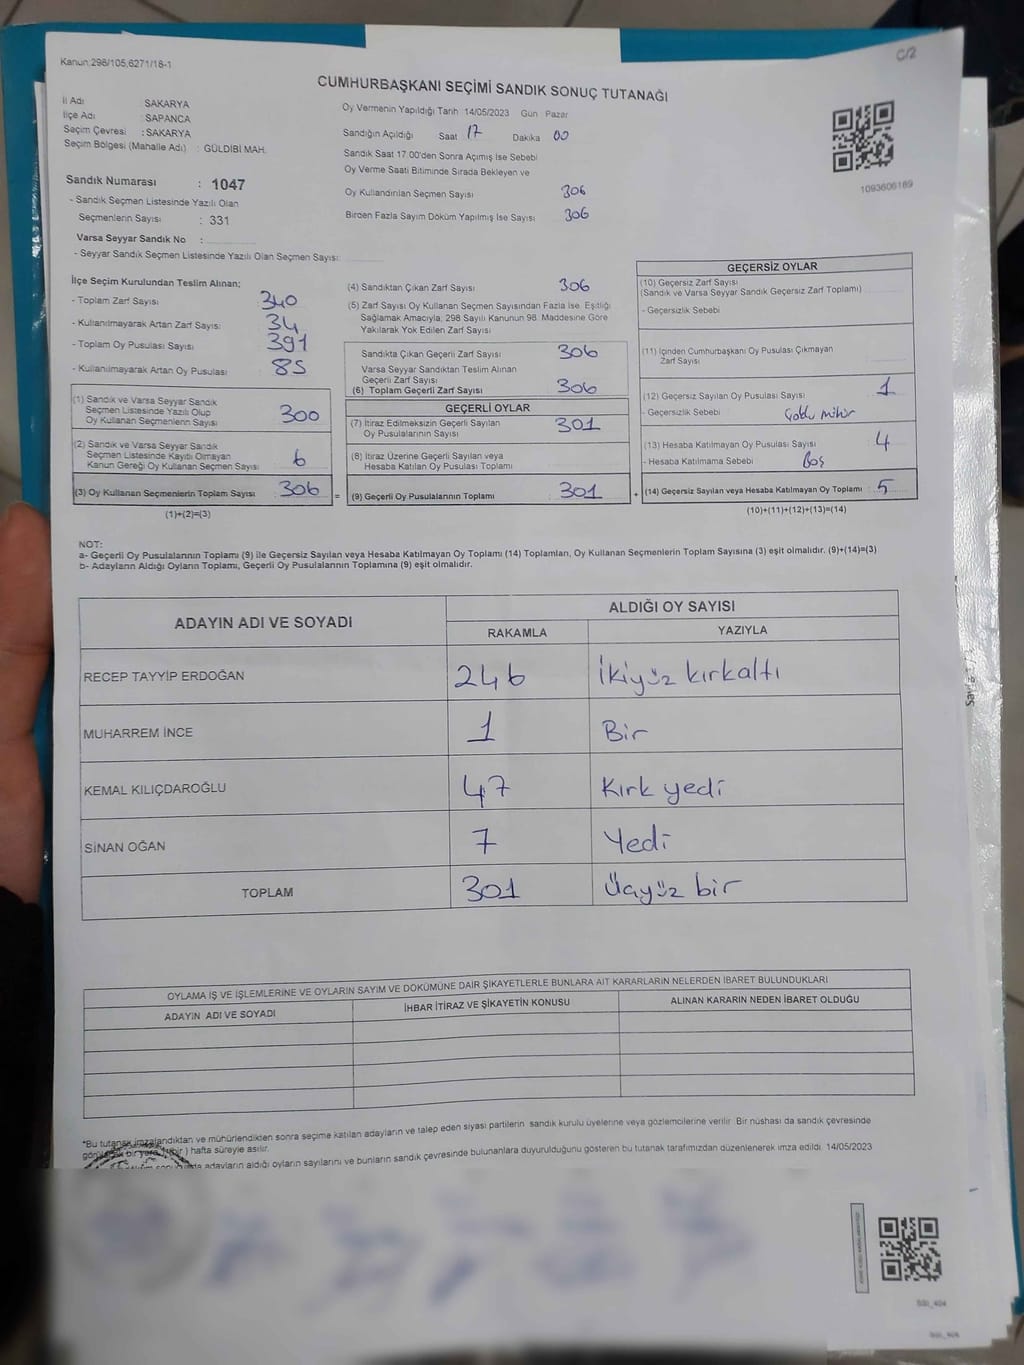 C/2
Kanun:298/105,6271/18-1
CUMHURBAŞKANI SEÇİMİ SANDIK SONUÇ TUTANAĞI
İl Adı SAKARYA
İlçe Adı : SAPANCA
Seçim Çevresi : SAKARYA
Seçim Bölgesi (Mahalle Adı) : GÜLDİBİ MAH.
Sandık Numarası : 1047
- Sandık Seçmen Listesinde Yazılı Olan
Seçmenlerin Sayısı : 331
Varsa Seyyar Sandık No :
- Seyyar Sandık Seçmen Listesinde Yazılı Olan Seçmen Sayısı:
Oy Vermenin Yapıldığı Tarih 14/05/2023 Gün Pazar
Sandığın Açıldığı Saat 17 Dakika 00
Sandık Saat 17.00'den Sonra Açımış İse Sebebi
Oy Verme Saati Bitiminde Sırada Bekleyen ve
Oy Kullandırılan Seçmen Sayısı 306
Birden Fazla Sayım Döküm Yapılmış İse Sayısı 306
1093606189
İlçe Seçim Kurulundan Teslim Alınan;
- Toplam Zarf Sayısı 340
- Kullanılmayarak Artan Zarf Sayısı 34
- Toplam Oy Pusulası Sayısı 391
- Kullanılmayarak Artan Oy Pusulası 85
(1) Sandık ve Varsa Seyyar Sandık
Seçmen Listesinde Yazılı Olup
Oy Kullanan Seçmenlerin Sayısı 300
(2) Sandık ve Varsa Seyyar Sandık
Seçmen Listesinde Kayıtlı Olmayan
Kanun Gereği Oy Kullanan Seçmen Sayısı 6
(3) Oy Kullanan Seçmenlerin Toplam Sayısı 306 =
(1)+(2)=(3)
(4) Sandıktan Çıkan Zarf Sayısı 306
(5) Zarf Sayısı Oy Kullanan Seçmen Sayısından Fazla İse, Eşitliği
Sağlamak Amacıyla; 298 Sayılı Kanunun 98. Maddesine Göre
Yakılarak Yok Edilen Zarf Sayısı
Sandıkta Çıkan Geçerli Zarf Sayısı 306
Varsa Seyyar Sandıktan Teslim Alınan
Geçerli Zarf Sayısı
(6) Toplam Geçerli Zarf Sayısı 306
GEÇERLİ OYLAR
(7) İtiraz Edilmeksizin Geçerli Sayılan
Oy Pusulalarının Sayısı 301
(8) İtiraz Üzerine Geçerli Sayılan veya
Hesaba Katılan Oy Pusulası Toplamı
(9) Geçerli Oy Pusulalarının Toplamı 301 +
GEÇERSİZ OYLAR
(10) Geçersiz Zarf Sayısı
(Sandık ve Varsa Seyyar Sandık Geçersiz Zarf Toplamı)
- Geçersizlik Sebebi
(11) İçinden Cumhurbaşkanı Oy Pusulası Çıkmayan
Zarf Sayısı
(12) Geçersiz Sayılan Oy Pusulası Sayısı 1
- Geçersizlik Sebebi Çoklu mühür
(13) Hesaba Katılmayan Oy Pusulası Sayısı 4
- Hesaba Katılmama Sebebi Boş
(14) Geçersiz Sayılan veya Hesaba Katılmayan Oy Toplamı 5
(10)+(11)+(12)+(13)=(14)
NOT:
a- Geçerli Oy Pusulalarının Toplamı (9) ile Geçersiz Sayılan veya Hesaba Katılmayan Oy Toplamı (14) Toplamları, Oy Kullanan Seçmenlerin Toplam Sayısına (3) eşit olmalıdır. (9)+(14)=(3)
b- Adayların Aldığı Oyların Toplamı, Geçerli Oy Pusulalarının Toplamına (9) eşit olmalıdır.
ADAYIN ADI VE SOYADI ALDIĞI OY SAYISI
RAKAMLA YAZIYLA
RECEP TAYYİP ERDOĞAN 246 İkiyüz kırkaltı
MUHARREM İNCE 1 Bir
KEMAL KILIÇDAROĞLU 47 Kırk yedi
SİNAN OĞAN 7 Yedi
TOPLAM 301 Üçyüz bir
OYLAMA İŞ VE İŞLEMLERİNE VE OYLARIN SAYIM VE DÖKÜMÜNE DAİR ŞİKAYETLERLE BUNLARA AİT KARARLARIN NELERDEN İBARET BULUNDUKLARI
ADAYIN ADI VE SOYADI İHBAR İTİRAZ VE ŞİKAYETİN KONUSU ALINAN KARARIN NEDEN İBARET OLDUĞU
*Bu tutanak imzalandıktan ve mühürlendikten sonra seçime katılan adayların ve talep eden siyasi partilerin sandık kurulu üyelerine veya gözlemcilerine verilir. Bir nüshası da sandık çevresinde
bir yere (bir) hafta süreyle asılır.
adayların aldığı oyların sayılarını ve bunların sandık çevresinde bulunanlara duyurulduğunu gösteren bu tutanak tarafımızdan düzenlenerek imza edildi. 14/05/2023